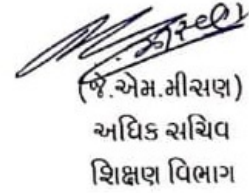 (જે.એમ.મીસણ)
અધિક સચિવ
શિક્ષણ વિભાગ